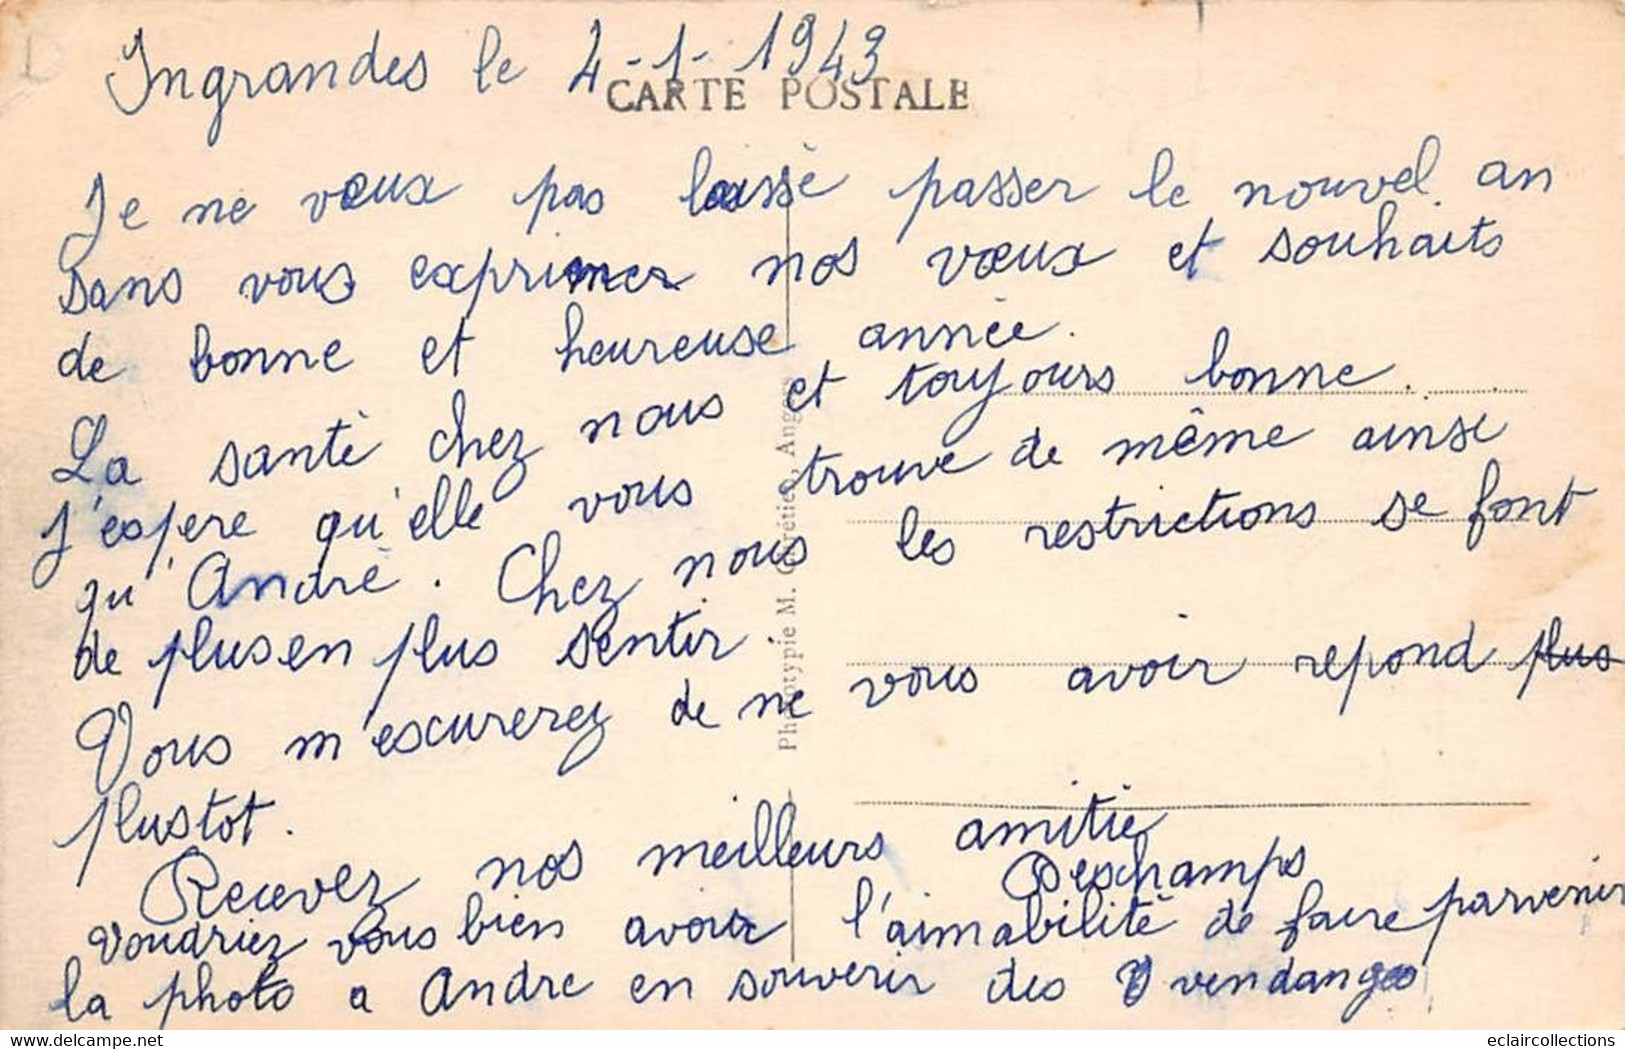 Ingrandes le 4-1-1943
CARTE POSTALE
Je ne veux pas laissé passer le nouvel an
sans vous exprimer nos vœux et souhaits
de bonne et heureuse année.
La santé chez nous et toujours bonne.
j'espere qu'elle vous trouve de même ainsi
qu'André. Chez nous les restrictions se font
de plus en plus sentir.
Vous m'escurerez de ne vous avoir repond plus
plustot.
Recevez nos meilleurs amitié
Deschamps
Voudriez vous bien avoir l'aimabilité de faire parvenir
la photo a Andre en souvenir des vendanges
Phototypie M. Chrétien, Angers
eclaircollections